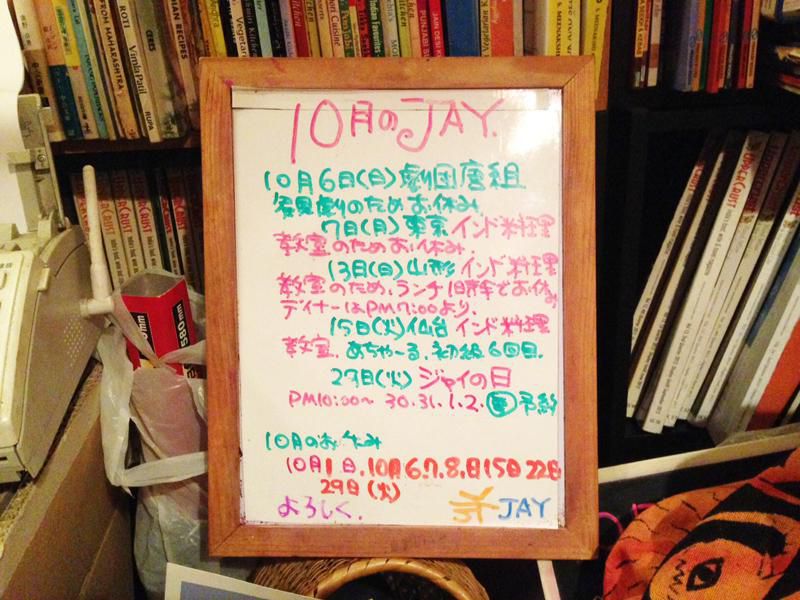 FROM MAHARASHTRA
ROTI
Vimla Patil
RUPA
CERES
INDIAN RECIPES
Vegetarian
PUNJABI
JAIN DESI
UPPERCRUST
UPPERCRUST
580mm
10月のJAY.
10月6日(日)劇団唐組
観劇のためお休み
7日(月)東京インド料理
教室のためお休み.
13日(日)山形インド料理
教室のため、ランチ1時半でお休み
ディナーはPM7:00より.
15日(火)仙台インド料理
教室.あちゃーる.初級6回目.
29日(火)ジャイの日
PM10:00〜 30.31.1.2. 要予約
10月のお休み
10月1日.10月6.7.8.日15日22日
29日(火)
よろしく.
JAY